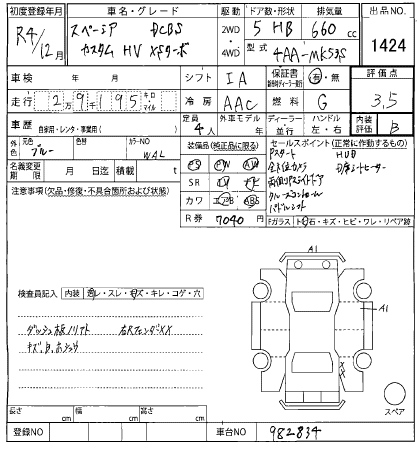 初度登録年月 車名・グレード 駆動 ドア数・形状 排気量 出品NO.
R4/12月 スペーシア DCBS 2WD 5 HB 660cc 1424
カスタム HV XSターボ 4WD 型式 4AA-MK53S
車検 年 月 シフト IA 保証書 有・無 評価点
走行 2万9千195 キロ マイル 冷房 AAC 燃料 G 3.5
車歴 自家用・レンタ・事業用( ) 定員 4人 外車モデル 年 ディーラー 並行 ハンドル 左・右 内装評価 B
外色 元色 ブルー 色替 カラーNO WAL 装備品(純正品に限る) セールスポイント(正常に作動するもの)
名義変更期限 月 日迄 積載 t PS PW AW
注意事項(欠品・修復・不具合箇所および状態) SR
カワ エアB ABS
R券 7040円
Pスタート HUD
全方位カメラ シートヒーター
両側パワースライドドア
クルーズコントロール
パドルシフト
Fガラス ト・石・キズ・ヒビ・ワレ・リペア跡
A1
A1
XX
検査員記入 内装 汚レ・スレ・キズ・キレ・コゲ・穴
ダッシュ板ノリフト 右RフェンダXX
長さ cm 幅 cm 高さ cm スペア
登録NO 車台NO 982834